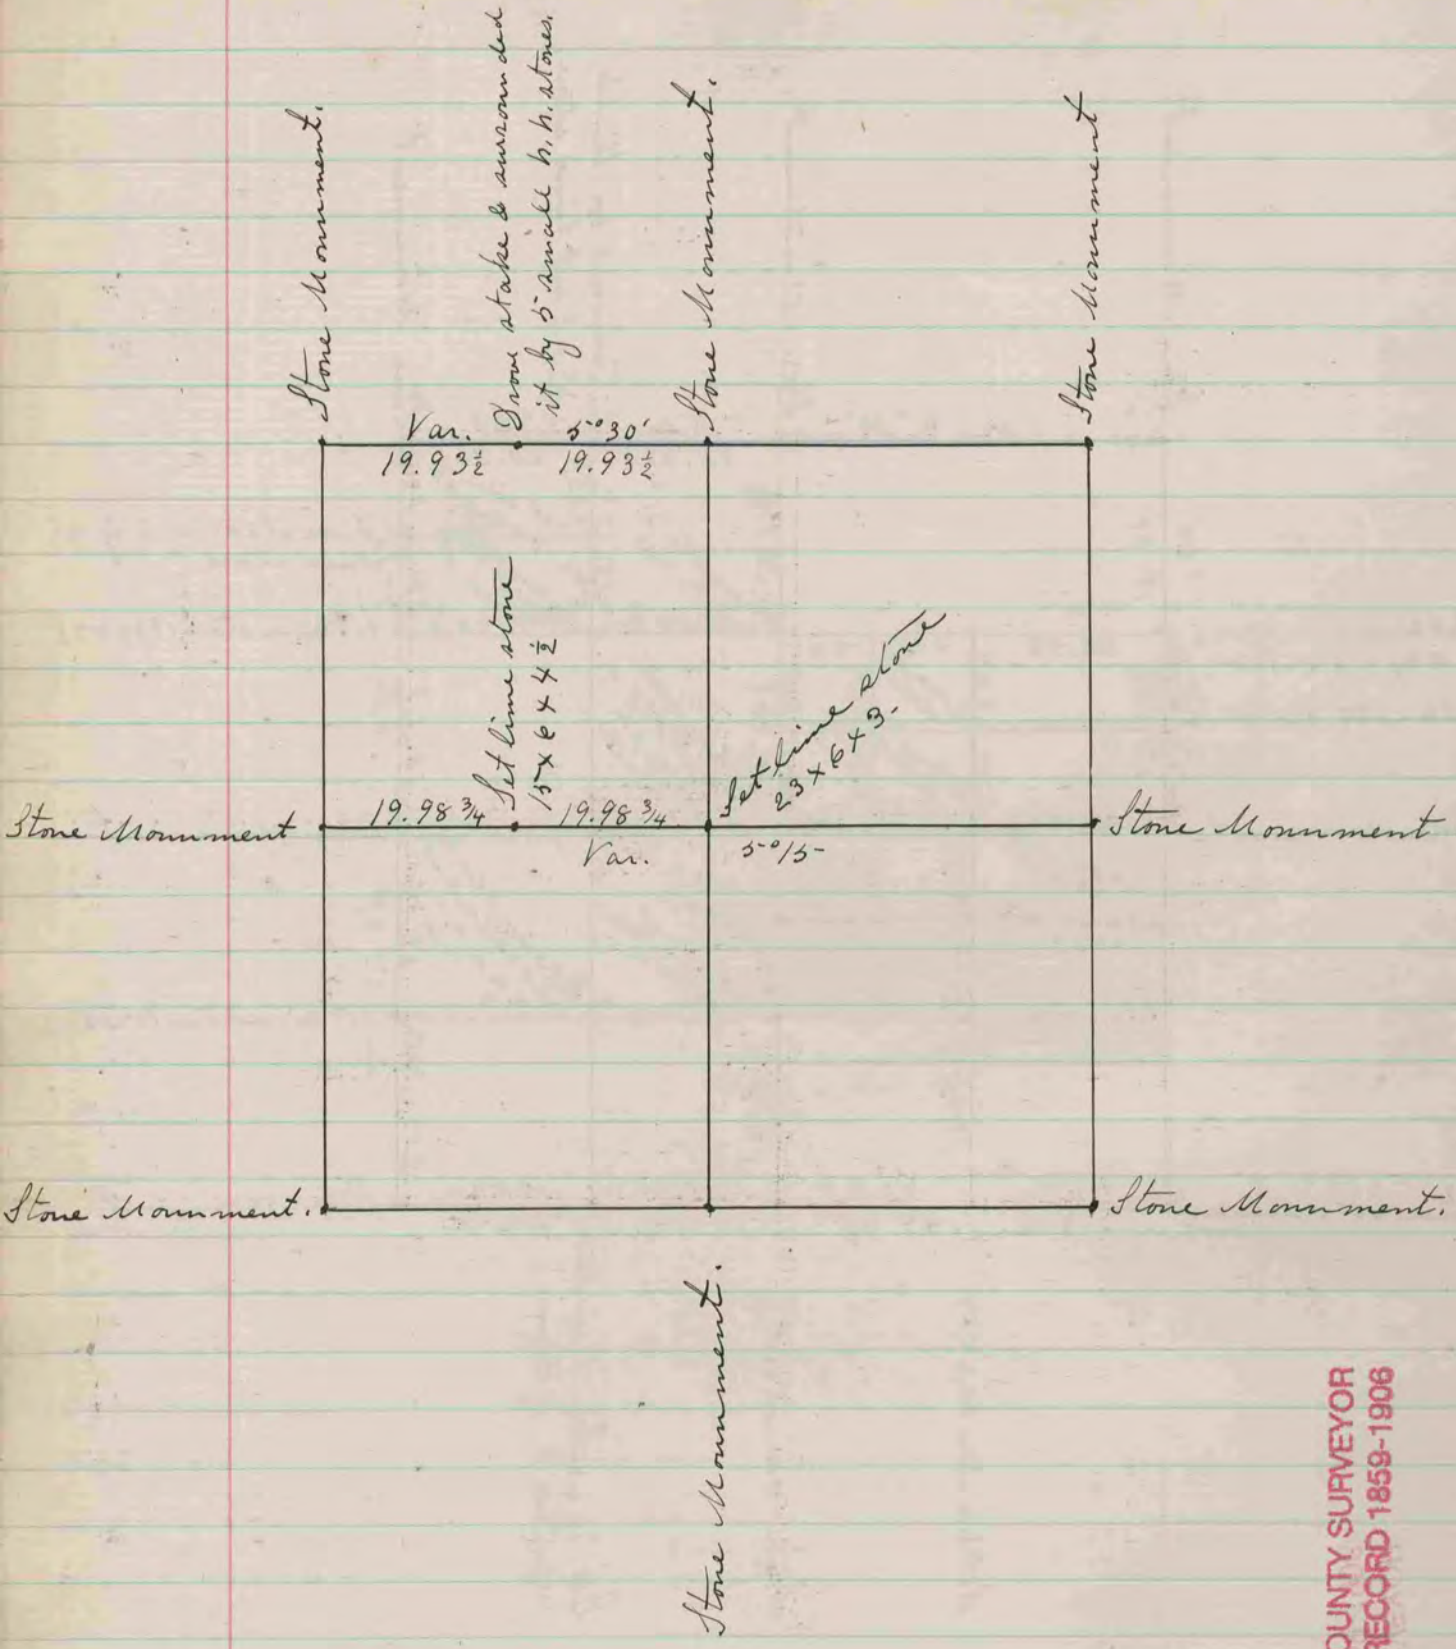 Stone Monument.
Drove stake & surrounded
it by 5 small h. h. stones.
Stone Monument.
Stone Monument
Var. 5°30'
19.93½ 19.93½
Set lime stone
15 x 6 x 4½
Set lime stone
23 x 6 x 3.
Stone Monument 19.98¾ 19.98¾ Stone Monument
Var. 5°15
Stone Monument. Stone Monument.
Stone Monument.
OUNTY SURVEYOR
RECORD 1859-1906